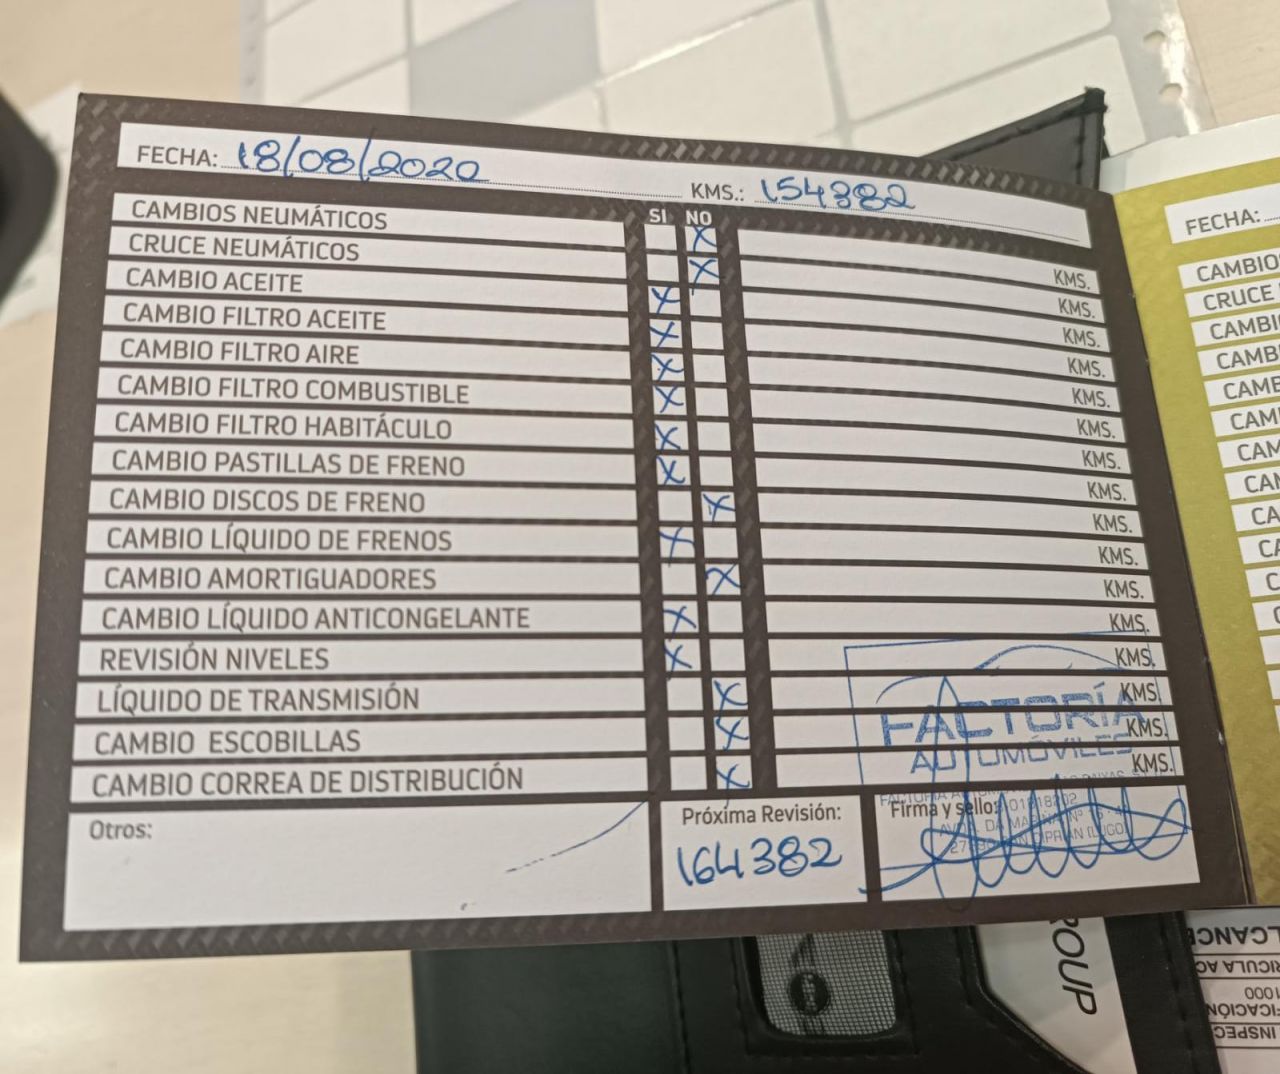 FECHA: 18/08/2020 KMS.: 154382
SI NO
CAMBIOS NEUMÁTICOS X KMS.
CRUCE NEUMÁTICOS X KMS.
CAMBIO ACEITE X KMS.
CAMBIO FILTRO ACEITE X KMS.
CAMBIO FILTRO AIRE X KMS.
CAMBIO FILTRO COMBUSTIBLE X KMS.
CAMBIO FILTRO HABITÁCULO X KMS.
CAMBIO PASTILLAS DE FRENO X KMS.
CAMBIO DISCOS DE FRENO X KMS.
CAMBIO LÍQUIDO DE FRENOS X KMS.
CAMBIO AMORTIGUADORES X KMS.
CAMBIO LÍQUIDO ANTICONGELANTE X KMS.
REVISIÓN NIVELES X KMS.
LÍQUIDO DE TRANSMISIÓN X KMS.
CAMBIO ESCOBILLAS X KMS.
CAMBIO CORREA DE DISTRIBUCIÓN X KMS.
FACTORÍA
AUTOMÓVILES
Otros:
Próxima Revisión:
164382
Firma y sello:
FECHA:
CAMBIO
CRUCE
CAMBI
CAMB
CAMB
CAM
CAM
CAM
CA
CA
C
ROUP
LCANCE
RICULA AC
1000
FICACIÓN
INSPEC